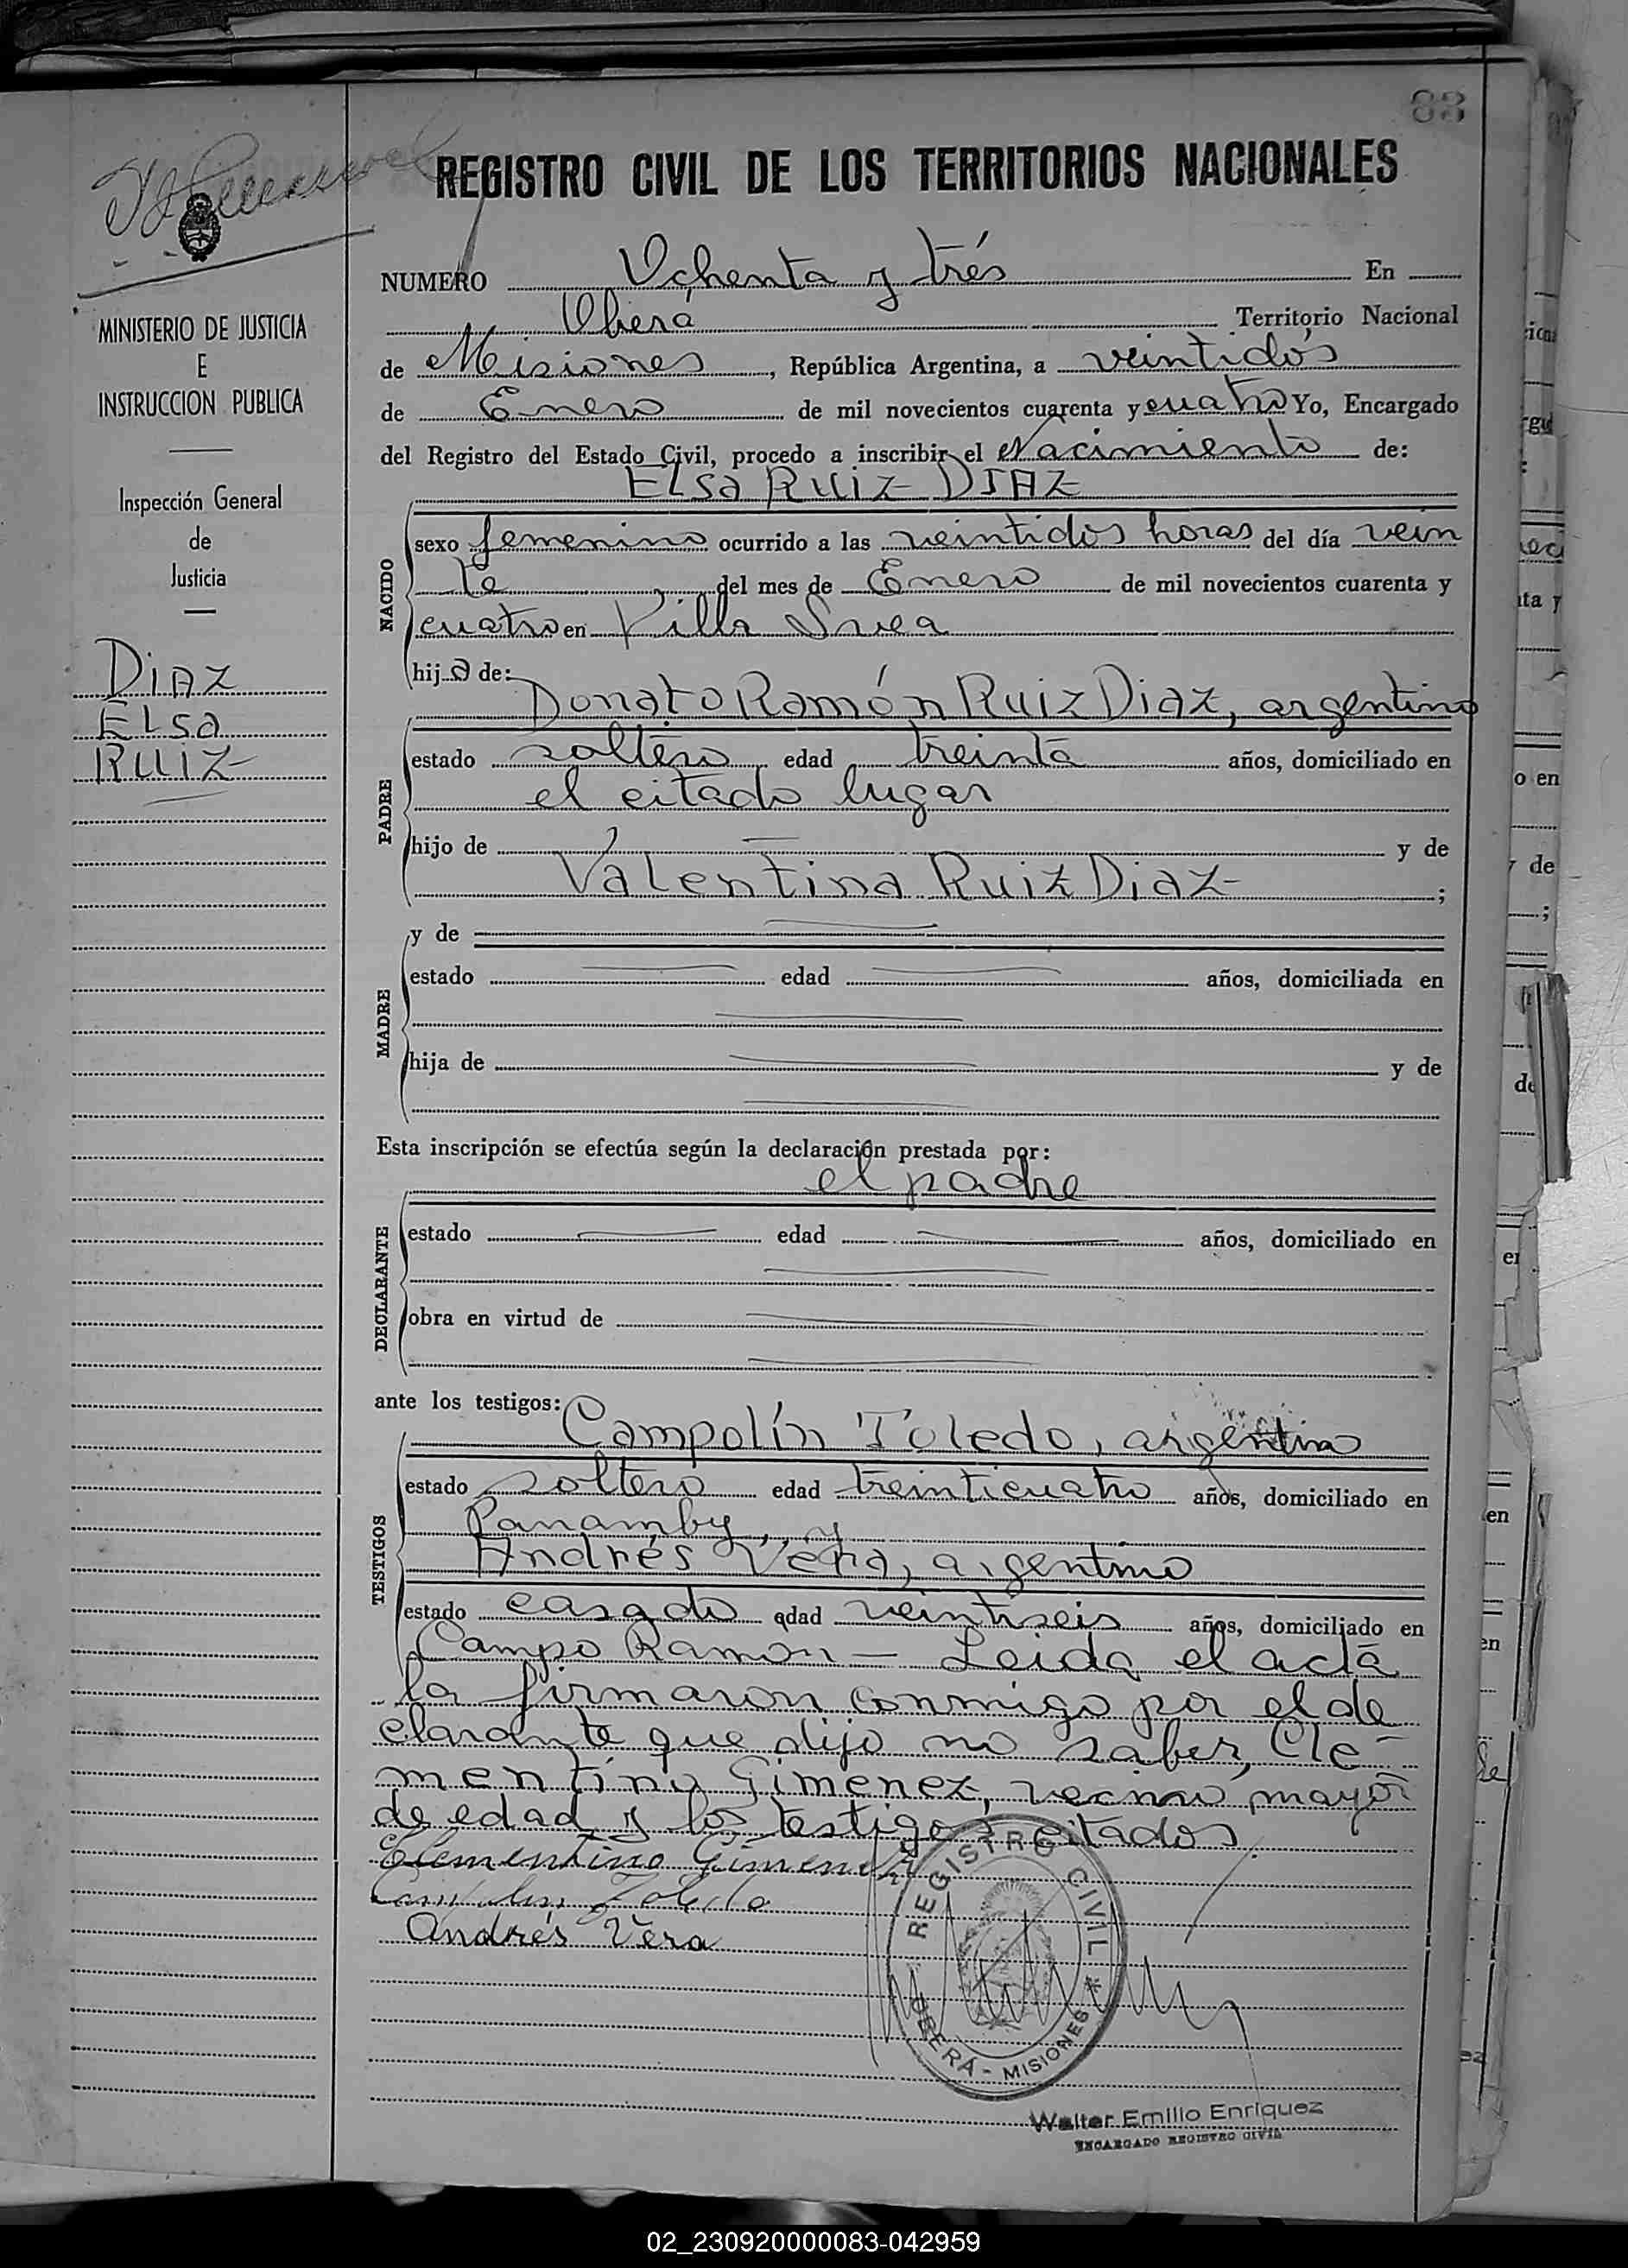 83
REGISTRO CIVIL DE LOS TERRITORIOS NACIONALES
MINISTERIO DE JUSTICIA
E
INSTRUCCION PUBLICA
Inspección General
de
Justicia
DIAZ
ELSA
RUIZ
NUMERO Ochenta y trés En
Oberá Territorio Nacional
de Misiones, República Argentina, a veintidós
de Enero de mil novecientos cuarenta y cuatro Yo, Encargado
del Registro del Estado Civil, procedo a inscribir el Nacimiento de:
ELSA RUIZ DIAZ
NACIDO
sexo femenino ocurrido a las veintidos horas del día vein
te del mes de Enero de mil novecientos cuarenta y
cuatro en Villa Svea
hija de:
Donato Ramón Ruiz Diaz, argentino
PADRE
estado soltero edad treinta años, domiciliado en
el citado lugar
hijo de — y de
Valentina Ruiz Diaz ;
MADRE
y de —
estado — edad — años, domiciliada en
—
hija de — y de
—
Esta inscripción se efectúa según la declaración prestada por:
el padre
DECLARANTE
estado — edad — años, domiciliado en
—
obra en virtud de —
—
ante los testigos:
Campolín Toledo, argentino
TESTIGOS
estado soltero edad treinticuatro años, domiciliado en
Panamby, y
Andrés Vera, argentino
estado casado edad veintiseis años, domiciliado en
Campo Ramon — Leida el acta
la firmaron conmigo por el de
clarante que dijo no saber, Cle-
mentino Gimenez, vecino mayor
de edad y los testigos citados.
Clementino Gimenez
Toledo
Andrés Vera
REGISTRO CIVIL
OBERÁ - MISIONES *
Walter Emilio Enriquez
ENCARGADO REGISTRO CIVIL
02_230920000083-042959